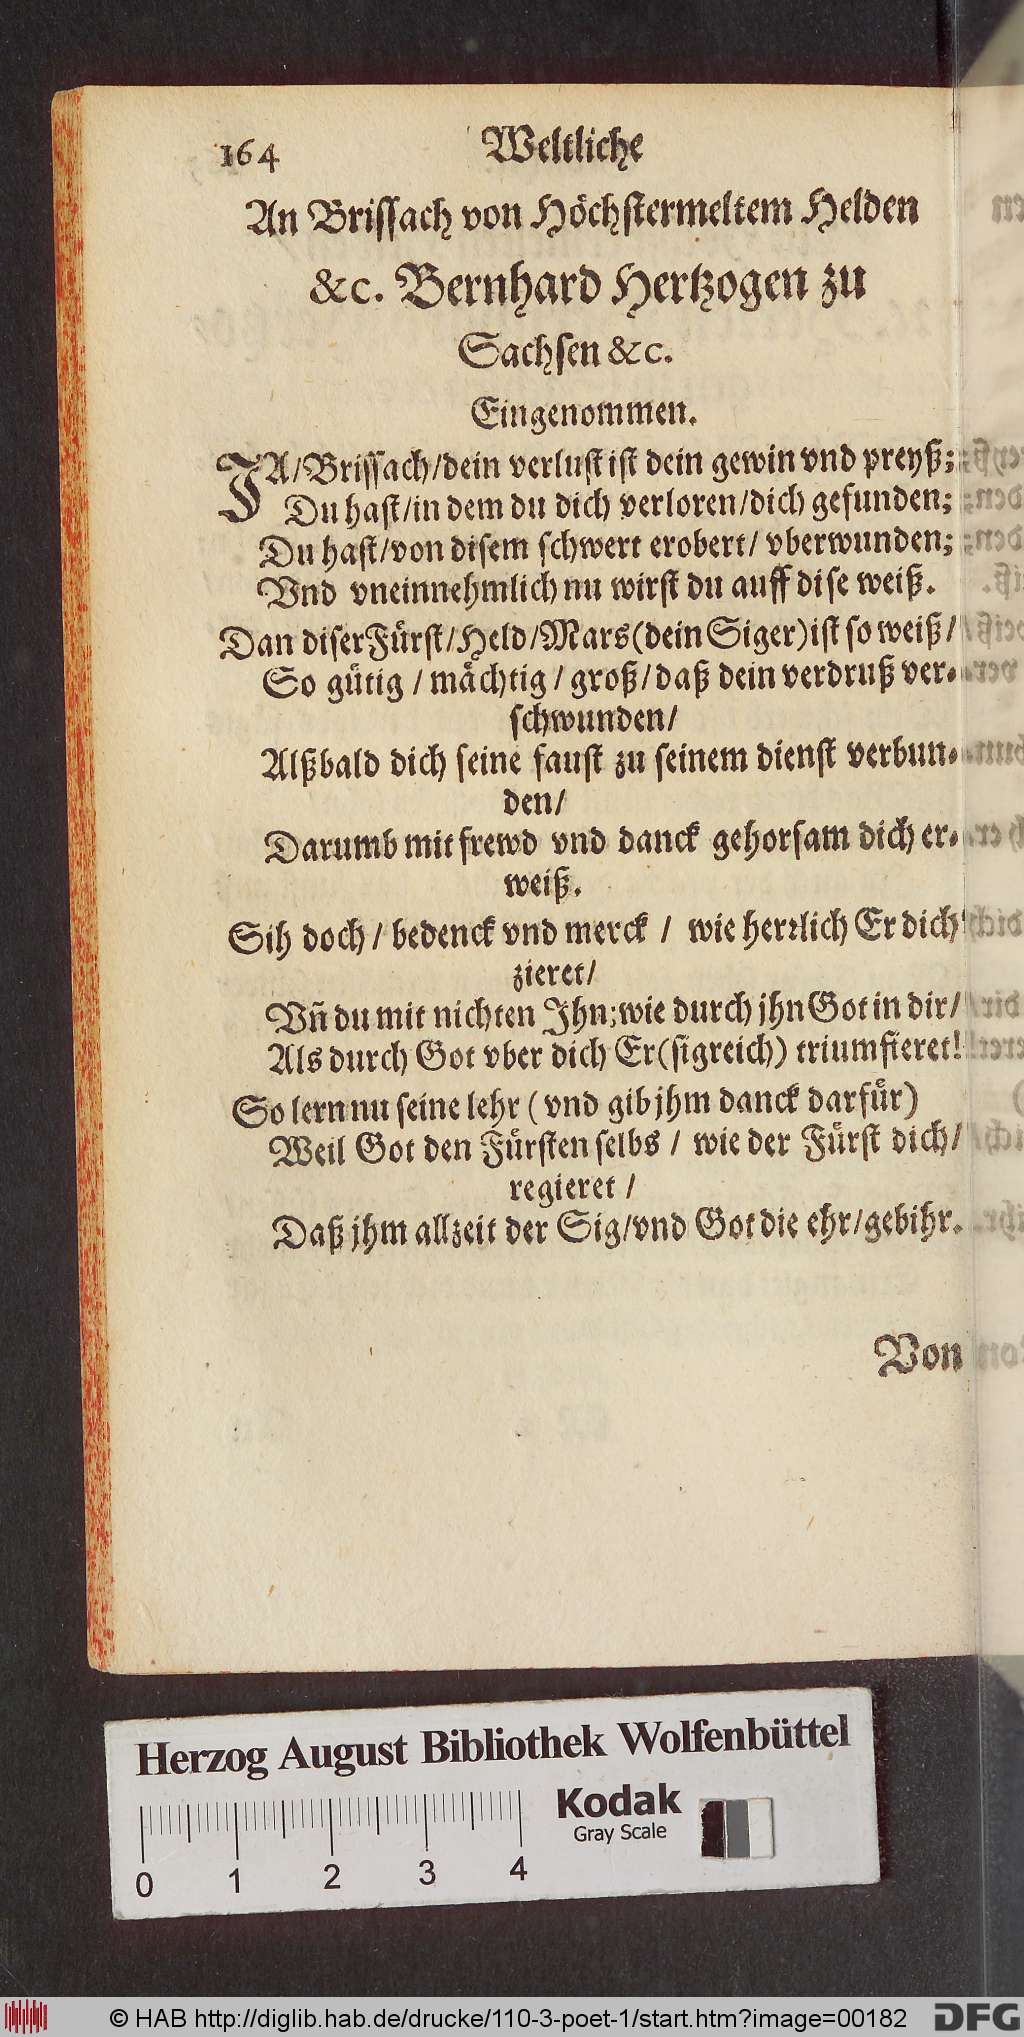 164 Weltliche
An Brissach von Höchstermeltem Helden
&c. Bernhard Hertzogen zu
Sachsen &c.
Eingenommen.
JA/Brissach/dein verlust ist dein gewin vnd preyß;
Du hast/in dem du dich verloren/dich gefunden;
Du hast/von disem schwert erobert/ vberwunden;
Vnd vneinnehmlich nu wirst du auff dise weiß.
Dan diser Fürst/Held/Mars(dein Siger)ist so weiß/
So gütig / mächtig / groß/daß dein verdruß ver-
schwunden/
Alßbald dich seine faust zu seinem dienst verbun-
den/
Darumb mit frewd vnd danck gehorsam dich er-
weiß.
Sih doch / bedenck vnd merck / wie herꝛlich Er dich
zieret/
Vñ du mit nichten Ihn;wie durch jhn Got in dir/
Als durch Got vber dich Er(sigreich) triumfieret!
So lern nu seine lehr ( vnd gib jhm danck darfür)
Weil Got den Fürsten selbs / wie der Fürst dich/
regieret /
Daß jhm allzeit der Sig/vnd Got die ehr/gebihr.
Von
Herzog August Bibliothek Wolfenbüttel
Kodak
Gray Scale
0 1 2 3 4
© HAB http://diglib.hab.de/drucke/110-3-poet-1/start.htm?image=00182
DFG